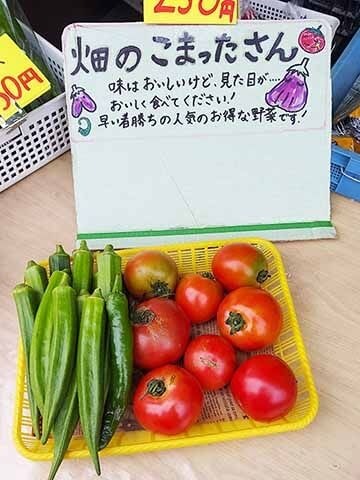 230円
50円
畑のこまったさん
味はおいしいけど、見た目が....
おいしく食べてください!
早い者勝ちの人気のお得な野菜です!